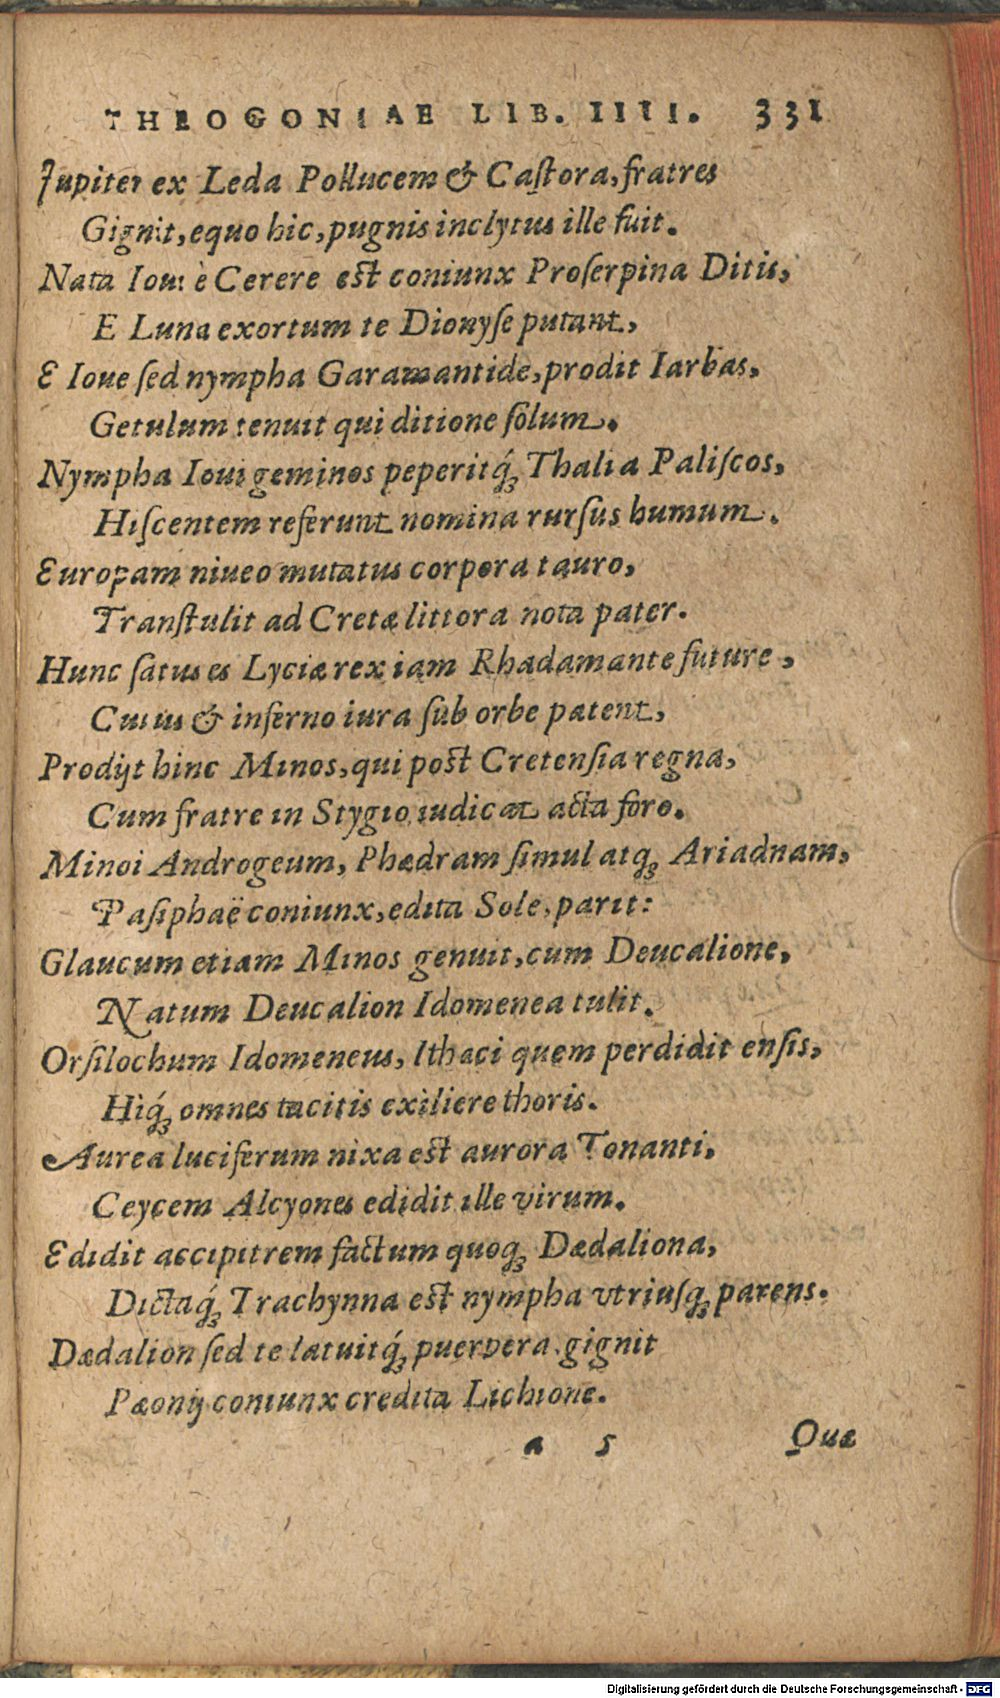 THEOGONIAE LIB. IIII. 331
Jupiter ex Leda Pollucem & Caſtora, fratres
Gignit, equo hic, pugnis inclytus ille fuit.
Nata Ioui è Cerere eſt coniunx Proſerpina Ditis,
E Luna exortum te Dionyſe putant,
E Ioue ſed nympha Garamantide, prodit Iarbas,
Getulum tenuit qui ditione ſolum.
Nympha Ioui geminos peperitq́; Thalia Paliſcos,
Hiſcentem referunt nomina rurſus humum.
Europam niueo mutatus corpora tauro,
Tranſtulit ad Cretæ littora nota pater.
Hunc ſatus es Lyciæ rex iam Rhadamante future,
Cuius & inferno iura ſub orbe patent,
Prodijt hinc Minos, qui poſt Cretenſia regna,
Cum fratre in Stygio iudicat acta foro.
Minoi Androgeum, Phædram ſimul atq; Ariadnam,
Paſiphaë coniunx, edita Sole, parit:
Glaucum etiam Minos genuit, cum Deucalione,
Natum Deucalion Idomenea tulit.
Orſilochum Idomeneus, Ithaci quem perdidit enſis,
Hiq́; omnes tacitis exiliere thoris.
Aurea luciferum nixa eſt aurora Tonanti,
Ceycem Alcyones edidit ille virum.
Edidit accipitrem factum quoq; Dædaliona,
Dictaq́; Trachynna eſt nympha vtriuſq; parens.
Dædalion ſed te latuitq́; puerpera gignit
Pæonij coniunx credita Lichione.
a 5 Quæ
Digitalisierung gefördert durch die Deutsche Forschungsgemeinschaft - DFG